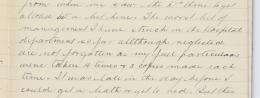 from when we saw the
a machine. The worst bit of
management I have struck in the hospital
department so far although neglected
are not forgotten as my full particulars
were taken 4 times & 3 copies made each
time. It was late in the day before I
could get a bath or get to bed. But then